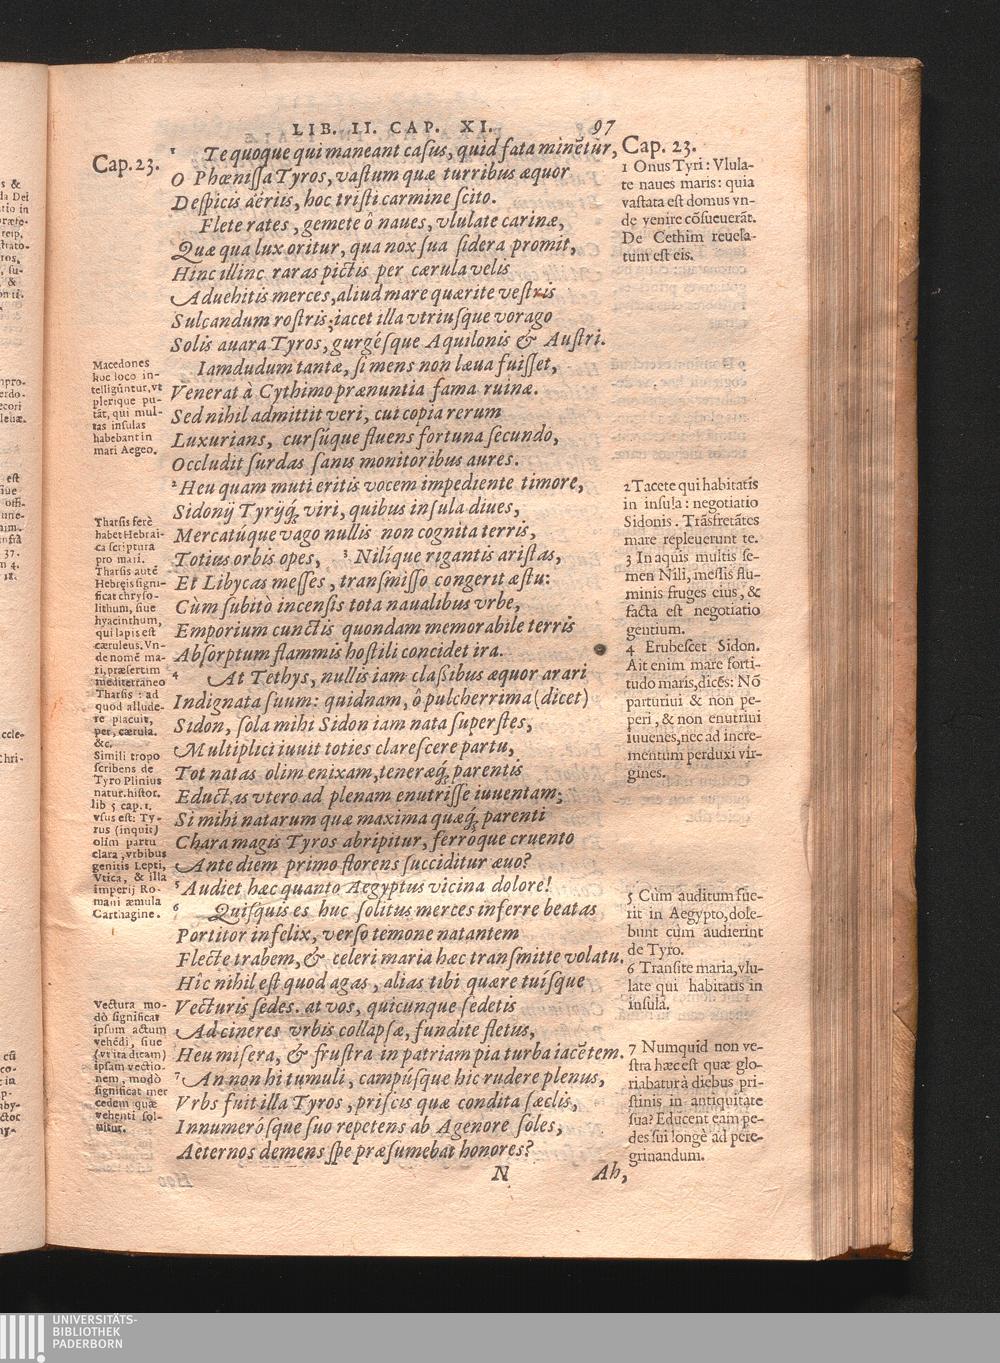 LIB. II. CAP. XI. 97
Cap. 23.
¹ Te quoque qui maneant casus, quid fata minẽtur,
O Phœnissa Tyros, vastum quæ turribus æquor
Despicis äériis, hoc tristi carmine scito.
Flete rates, gemete ô naues, vlulate carinæ,
Quæ qua lux oritur, qua nox sua sidera promit,
Hinc illinc raras pictis per cærula velis
Aduehitis merces, aliud mare quærite vestris
Sulcandum rostris; iacet illa vtriusque vorago
Solis auara Tyros, gurgésque Aquilonis & Austri.
Iamdudum tantæ, si mens non læua fuisset,
Venerat à Cythimo prænuntia fama ruinæ.
Sed nihil admittit veri, cui copia rerum
Luxurians, cursúque fluens fortuna secundo,
Occludit surdas sanis monitoribus aures.
² Heu quam muti eritis vocem impediente timore,
Sidonij Tyrijq́ꝫ viri, quibus insula diues,
Mercatúque vago nullis non cognita terris,
Totius orbis opes, ³ Nilíque rigantis aristas,
Et Libycas messes, transmisso congerit æstu:
Cùm subitò incensis tota naualibus vrbe,
Emporium cunctis quondam memorabile terris
Absorptum flammis hostili concidet ira.
⁴ At Tethys, nullis iam classibus æquor arari
Indignata suum: quidnam, ô pulcherrima (dicet)
Sidon, sola mihi Sidon iam nata superstes,
Multiplici iuuit toties clarescere partu,
Tot natas olim enixam, teneræq́ꝫ parentis
Eductas vtero ad plenam enutrisse iuuentam;
Si mihi natarum quæ maxima quæq́ꝫ parenti
Chara magis Tyros abripitur, ferróque cruento
Ante diem primo florens succiditur æuo?
⁵ Audiet hæc quanto Aegyptus vicina dolore!
⁶ Quisquis es huc solitus merces inferre beatas
Portitor infelix, verso temone natantem
Flecte trabem, & celeri maria hæc transmitte volatu.
Hîc nihil est quod agas, alias tibi quære tuísque
Vecturis sedes. at vos, quicunque sedetis
Ad cineres vrbis collapsæ, fundite fletus,
Heu misera, & frustra in patriam pia turba iacẽtem.
⁷ An non hi tumuli, campúsque hic rudere plenus,
Vrbs fuit illa Tyros, priscis quæ condita sæclis,
Innumerósque suo repetens ab Agenore soles,
Aeternos demens spe præsumebat honores?
N Ah,
Macedones
hoc loco in-
telligũntur, vt
plerique pu-
tãt, qui mul-
tas insulas
habebant in
mari Aegeo.
Tharsis ferè
habet Hebrai-
ca scriptura
pro mari.
Tharsis autẽ
Hebreis signi-
ficat chryso-
lithum, siue
hyacinthum,
qui lapis est
cæruleus. Vn-
de nomẽ ma-
ri, præsertim
mediterraneo
Tharsis: ad
quod allude-
re placuit,
per, cærula.
&c.
Simili tropo
scribens de
Tyro Plinius
natur. histor.
lib 5 cap. 1.
vsus est: Ty-
rus (inquit)
olim partu
clara, vrbibus
genitis Lepti,
Vtica, & illa
imperij Ro-
mani æmula
Carthagine.
Vectura mo-
dò significat
ipsum actum
vehẽdi, siue
(vt ita dicam)
ipsam vectio-
nem, modò
significat mer
cedem quæ
vehenti sol-
uitur.
Cap. 23.
1 Onus Tyri: Vlula-
te naues maris: quia
vastata est domus vn-
de venire cõsueuerãt.
De Cethim reuela-
tum est eis.
2 Tacete qui habitatis
in insula: negotiatio
Sidonis. Trãsfretãtes
mare repleuerunt te.
3 In aquis multis se-
men Nili, messis flu-
minis fruges eius, &
facta est negotiatio
gentium.
4 Erubescet Sidon.
Ait enim mare forti-
tudo maris, dicẽs: Nõ
parturiui & non pe-
peri, & non enutriui
iuuenes, nec ad incre-
mentum perduxi vir-
gines.
5 Cùm auditum fue-
rit in Aegypto, dole-
bunt cùm audierint
de Tyro.
6 Transite maria, vlu-
late qui habitatis in
insula.
7 Numquid non ve-
stra hæc est quæ glo-
riabatur à diebus pri-
stinis in antiquitate
sua? Educent eam pe-
des sui longè ad pere-
grinandum.
UNIVERSITÄTS-
BIBLIOTHEK
PADERBORN